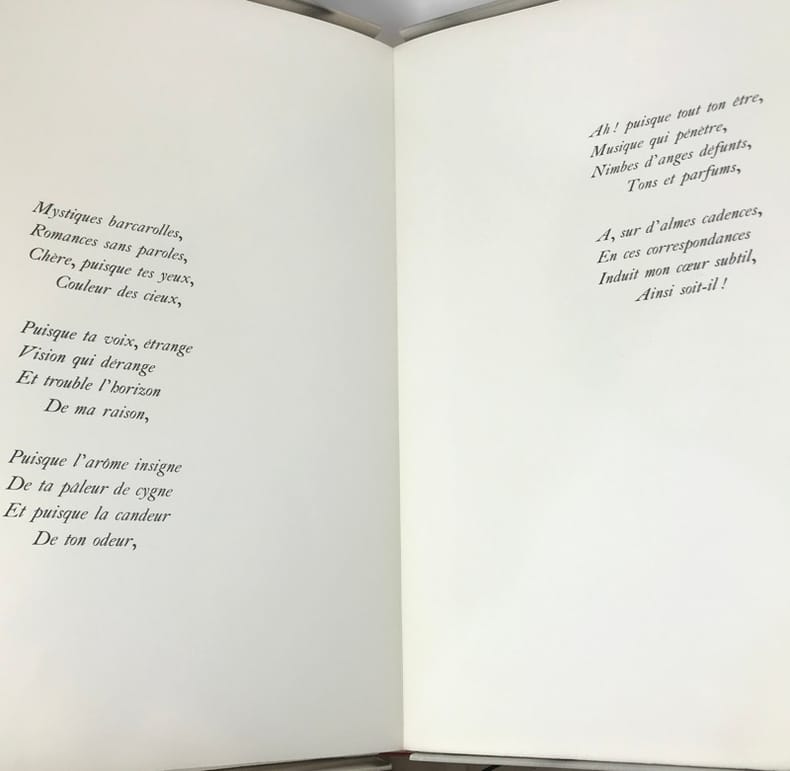 Mystiques barcarolles,
Romances sans paroles,
Chère, puisque tes yeux,
Couleur des cieux,
Puisque ta voix, étrange
Vision qui dérange
Et trouble l'horizon
De ma raison,
Puisque l'arôme insigne
De ta pâleur de cygne
Et puisque la candeur
De ton odeur,
Ah! puisque tout ton être,
Musique qui pénètre,
Nimbes d'anges défunts,
Tons et parfums,
A, sur d'almes cadences,
En ces correspondances
Induit mon cœur subtil,
Ainsi soit-il !